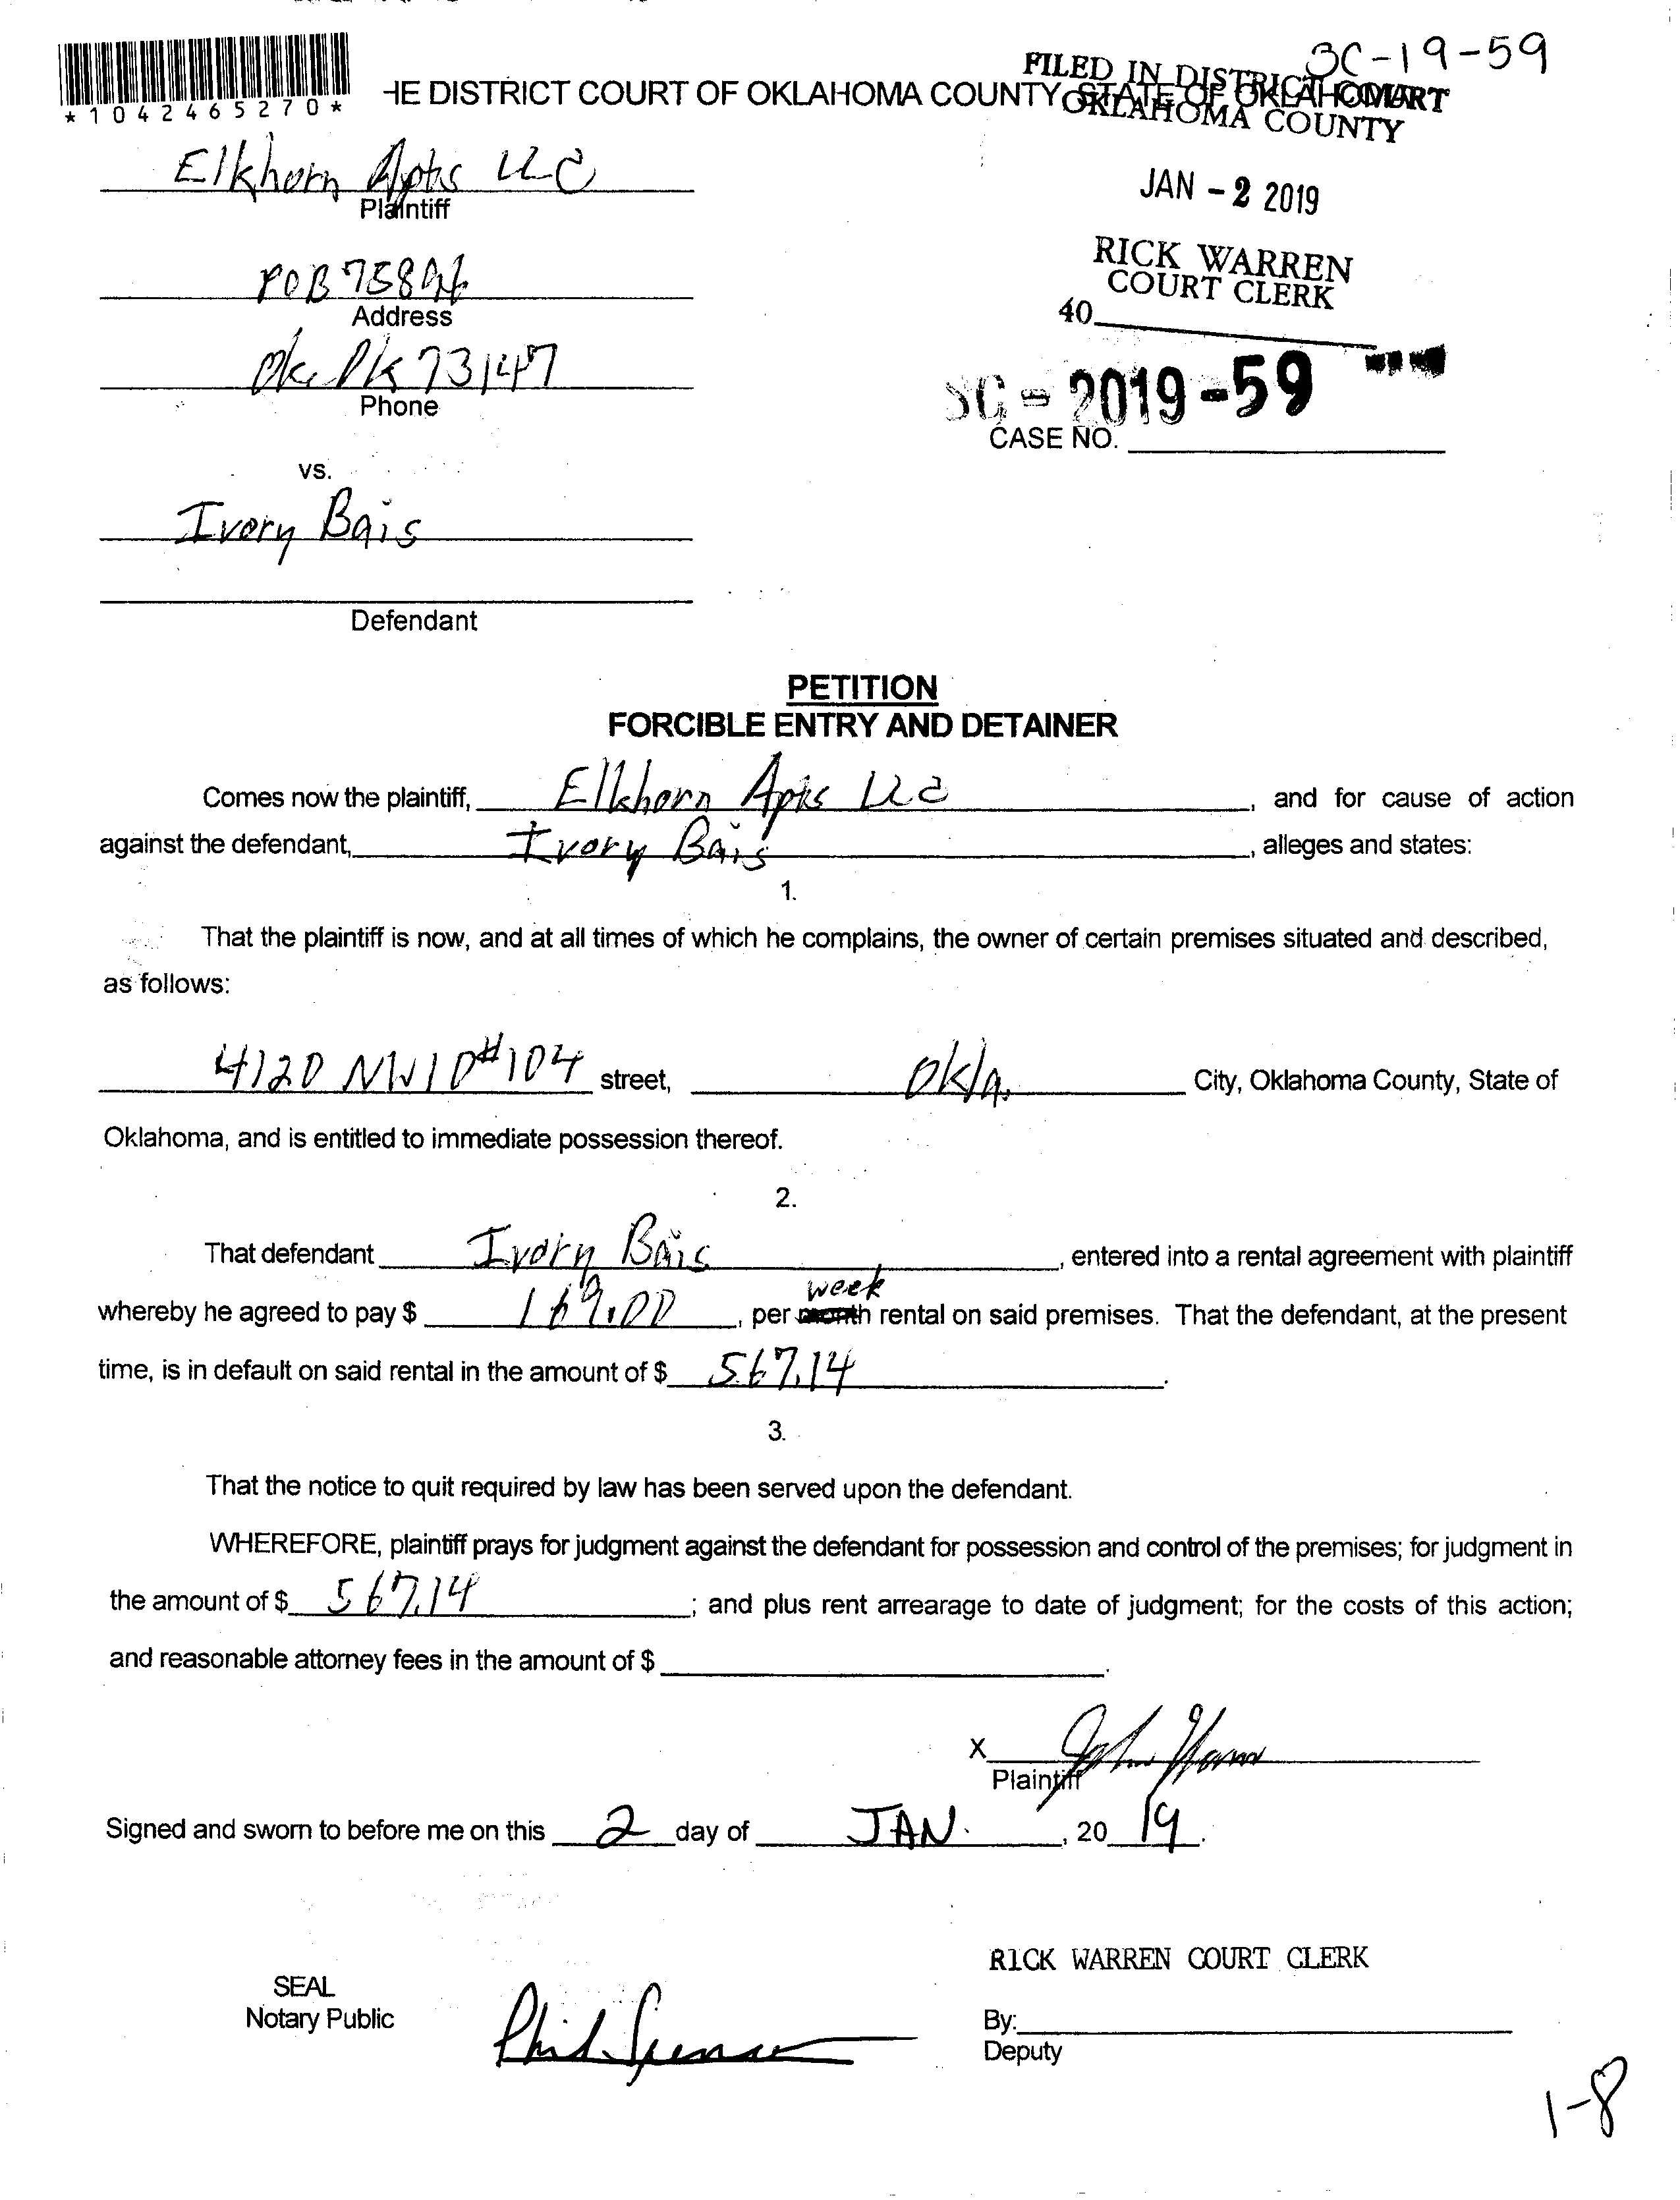 SC-19-59
*1042465270*
HE DISTRICT COURT OF OKLAHOMA COUNTY, STATE OF OKLAHOMA
FILED IN DISTRICT COURT
OKLAHOMA COUNTY
Elkhorn Apts LLC
Plaintiff
JAN - 2 2019
RICK WARREN
COURT CLERK
40
POB 75896
Address
Ok. Ok 73147
Phone
SC - 2019 - 59
CASE NO.
vs.
Ivory Bais
Defendant
PETITION
FORCIBLE ENTRY AND DETAINER
Comes now the plaintiff, Elkhorn Apts LLC, and for cause of action
against the defendant, Ivory Bais, alleges and states:
1.
That the plaintiff is now, and at all times of which he complains, the owner of certain premises situated and described,
as follows:
4120 NW10 #104 street, Okla. City, Oklahoma County, State of
Oklahoma, and is entitled to immediate possession thereof.
2.
That defendant Ivory Bais, entered into a rental agreement with plaintiff
week
whereby he agreed to pay $ 169.00, per month rental on said premises. That the defendant, at the present
time, is in default on said rental in the amount of $ 567.14.
3.
That the notice to quit required by law has been served upon the defendant.
WHEREFORE, plaintiff prays for judgment against the defendant for possession and control of the premises; for judgment in
the amount of $ 567.14; and plus rent arrearage to date of judgment; for the costs of this action;
and reasonable attorney fees in the amount of $ .
X
Plaintiff
Signed and sworn to before me on this 2 day of JAN., 20 19.
RICK WARREN COURT CLERK
SEAL
Notary Public
By:
Deputy
1-8